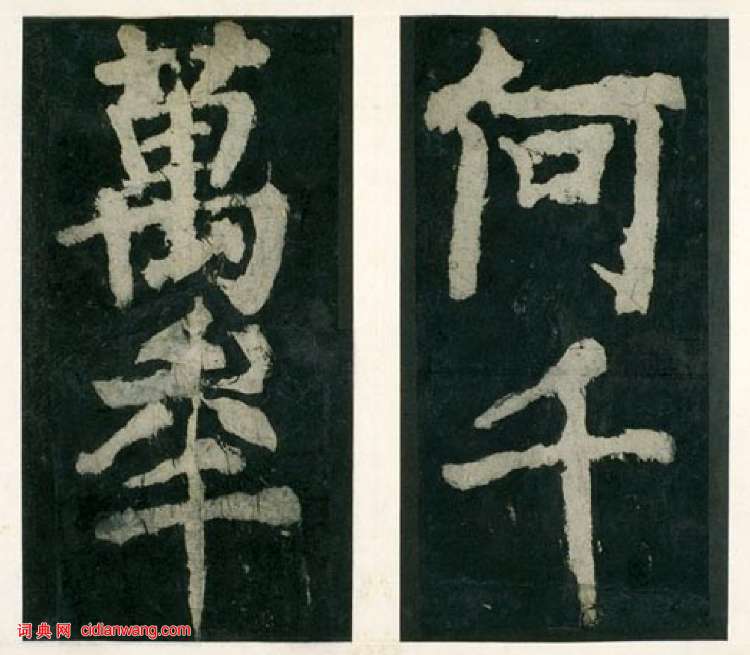 何千
萬秊
词典网 cidianwang.com